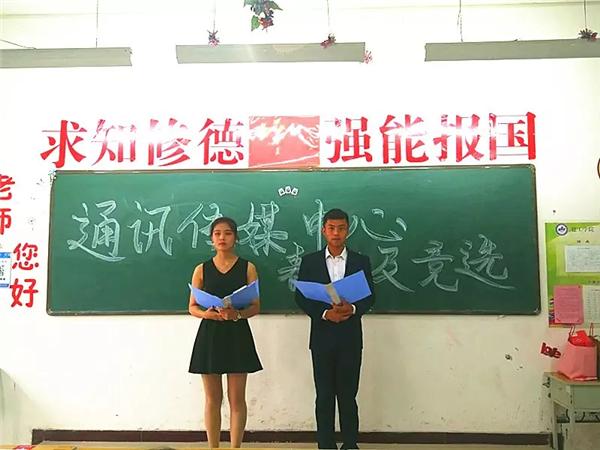 求知修德 强能报国
通讯传媒中心
表 及竞选
老师
您好
love